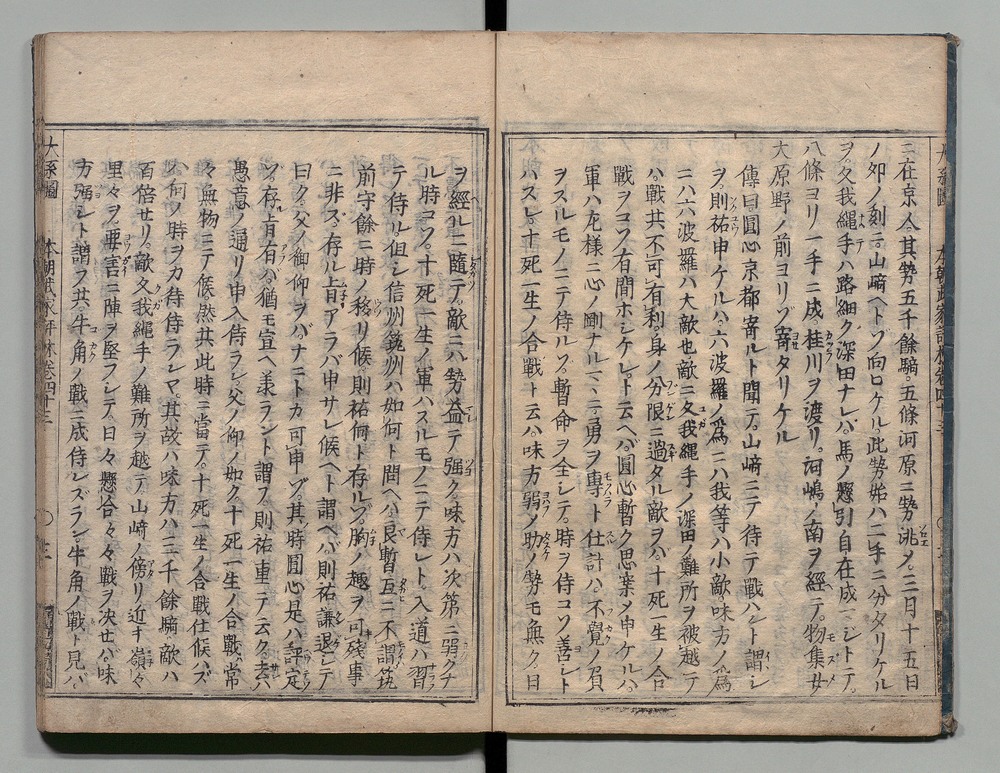 ニ在京人。其勢五千餘騎。五條河原ニ勢洮ノ。三日十五日
ノ卯ノ刻ニ。山﨑ヘトゾ向ヒケル。此勢始ハ二手ニ分タリケル
ヲ。久我縄手ハ路細ク。深田ナレバ。馬ノ懸引自在成マジトテ。
八條ヨリ一手ニ成。桂川ヲ渡リ。河嶋ノ南ヲ經テ。物集女
大原野ノ前ヨリゾ寄タリケル
傳曰圓心京都寄ルト聞テ。山﨑ニテ待テ戰ハント謂シ
ヲ。則祐申ケルハ。六波羅ノ爲ニハ我等ハ小敵味方ノ爲
ニハ六波羅ハ大敵也敵ニ久我縄手ノ深田ノ難所ヲ被越テ
ハ。戰共不可有利。身ノ分限ニ過タル敵ヲバ。十死一生ノ合
戰ヲコソ有間ホシケレト云ヘバ。圓心暫ク思案メ申ケルハ。
軍ハ左様ニ心ノ剛ナルマヽニ勇ヲ專ト仕計ハ。不覺ノ負
ヲスルモノニテ侍ルゾ。暫命ヲ全シテ。時ヲ侍コソ善レト
ハスレ。十死一生ノ合戰ト云ハ。味方弱ノ助ノ勢モ無ク。日
ヲ經ルニ隨テ。敵ニハ勢益テ強ク。味方ハ次第ニ弱クナ
ル時コソ。十死一生ノ軍ハスルモノニテ侍レト。入道ハ習
テ侍ル但シ信州筑州ハ如何ト問ヘバ。良暫互ニ不謂筑
前守餘ニ時ノ移リ候。則祐何ト存ルゾ。胸ノ趣ヲ可殘事
ニ非ズ。存ル旨アラバ申サレ候ヘト謂ヘバ。則祐謙退シテ
曰ク。父ノ御仰ヲバ。ナニトカ可申ゾ。其時圓心是ハ評定
ゾ存旨有バ。猶モ宣ヘ美ラント謂フ。則祐重テ云ク。去ハ
愚意ノ通リ申入侍ラン。父ノ仰ノ如ク。十死一生ノ合戰。常
々無物ニテ候。然共此時ニ當テ。十死一生ノ合戰仕候ハズ
ハ。何ノ時ヲカ待侍ランマ。其故ハ味方ハ三千餘騎敵ハ
百倍セリ。敵久我縄手ノ難所ヲ越テ。山﨑ノ傍リ近キ嶺々
里々ヲ。要害ニ陣ヲ堅フシテ。日々懸合々々戰ヲ决セバ。味
方強シト謂フ共。牛角ノ戰ニ成侍レズラン。牛角ノ戰ト見バ
本朝武家評林卷四十三
〇
三